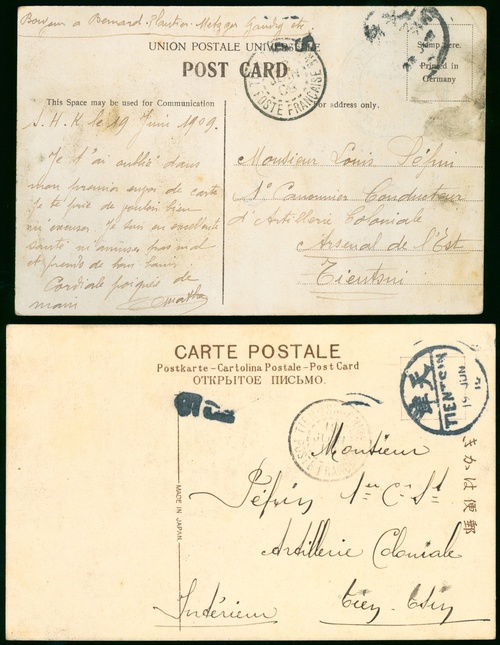 Bonjour a Bernard. Plantier. Metzger Gaudry etc
UNION POSTALE UNIVERSELLE
POST CARD
Stamp here.
Printed in
Germany
POSTE FRANÇAISE
This Space may be used for Communication
for address only.
S. H. K le 19 Juin 1909.
Je t'ai oublié dans
mon premier envoi de carte
Je te prie de vouloir bien
m'excuser. Je suis en excellente
santé m'amuse pas mal
et prends de bons bains.
Cordiale poignée de
main
Monsieur Louis Péfin
1er Canonnier Conducteur
d'Artillerie Coloniale
Arsenal de l'Est
Tientsin
CARTE POSTALE
Postkarte - Cartolina Postale - Post Card
ОТКРЫТОЕ ПИСЬМО.
天津
TIENTSIN
JUN
きかは便郵
MADE IN JAPAN.
Monsieur
Péfin 1er Cr St
Artillerie Coloniale
Intérieur Tien-Tsin